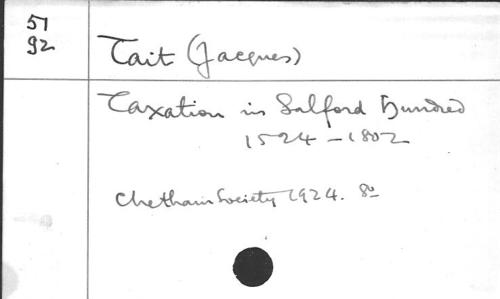 51
92
Tait (Jacques)
Taxation in Salford Hundred
1524 - 1802
Chetham Society 1924. 8o